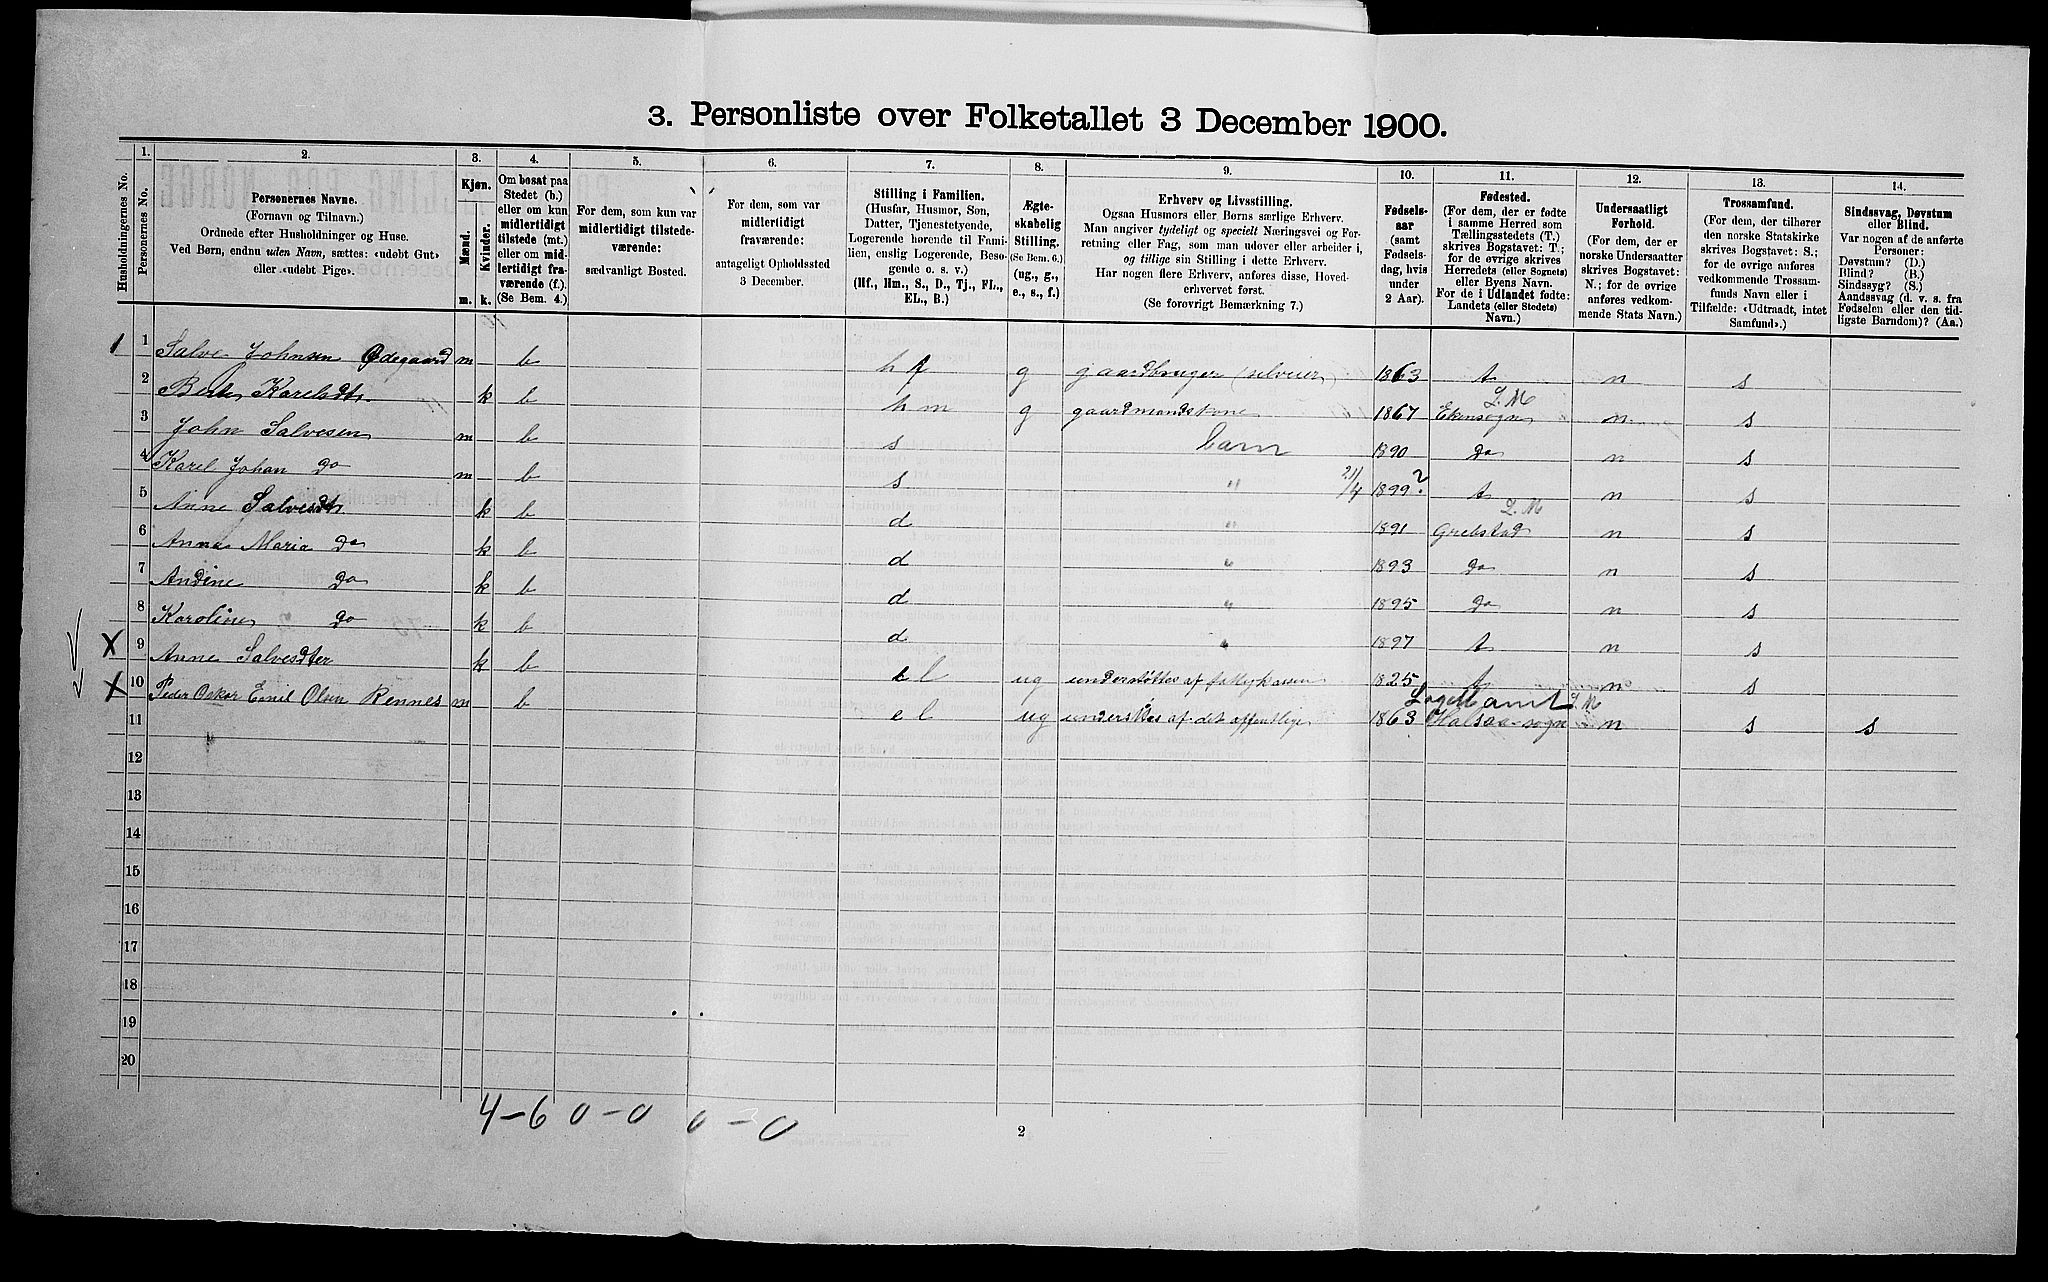 3. Personliste over Folketallet 3 December 1900.
Husholdningernes No.
1. Personernes No.
2. Personernes Navne. (Fornavn og Tilnavn.) Ordnede efter Husholdninger og Huse. Ved Børn, endnu uden Navn, sættes: «udøbt Gut» eller «udøbt Pige».
3. Kjøn. Mænd. Kvinder. m. k.
4. Om bosat paa Stedet (b.) eller om kun midlertidigt tilstede (mt.) eller om midlertidigt fraværende (f.). (Se Bem. 4.)
5. For dem, som kun var midlertidigt tilstedeværende: sædvanligt Bosted.
6. For dem, som var midlertidigt fraværende: antageligt Opholdssted 3 December.
7. Stilling i Familien. (Husfar, Husmor, Søn, Datter, Tjenestetyende, Logerende hørende til Familien, enslig Logerende, Besøgende o. s. v.) (Hf., Hm., S., D., Tj., FL., EL., B.)
8. Ægteskabelig Stilling. (Se Bem. 6.) (ug., g., e., s., f.)
9. Erhverv og Livsstilling. Ogsaa Husmors eller Børns særlige Erhverv. Man angiver tydeligt og specielt Næringsvei og Forretning eller Fag, som man udøver eller arbeider i, og tillige sin Stilling i dette Erhverv. Har nogen flere Erhverv, anføres disse, Hovederhvervet først. (Se forøvrigt Bemærkning 7.)
10. Fødselsaar (samt Fødselsdag, hvis under 2 Aar).
11. Fødested. (For dem, der er fødte i samme Herred som Tællingsstedets (T.) skrives Bogstavet: T.; for de øvrige skrives Herredets (eller Sognets) eller Byens Navn. For de i Udlandet fødte: Landets (eller Stedets) Navn.)
12. Undersaatligt Forhold. (For dem, der er norske Undersaatter skrives Bogstavet: N.; for de øvrige anføres vedkommende Stats Navn.)
13. Trossamfund. (For dem, der tilhører den norske Statskirke skrives Bogstavet: S.; for de øvrige anføres vedkommende Trossamfunds Navn eller i Tilfælde: «Udtraadt, intet Samfund».)
14. Sindssvag, Døvstum eller Blind. Var nogen af de anførte Personer: Døvstum? (D.) Blind? (B.) Sindssyg? (S.) Aandssvag (d. v. s. fra Fødselen eller den tidligste Barndom)? (Aa.)
1 1 Salve Johnsen Ødegaard m b hf g gaardbruger (selveier) 1863 t n s
2 Berte Karelsdtr k b hm g gaardmandskone 1867 L.M Ekensogn n s
3 John Salvesen m b s barn 1890 do n s
4 Karel Johan do m b s " 21/4 1899? t n s
5 Anne Salvesdtr k b d " 1891 L.M Grebstad n s
6 Anne Maria do k b d " 1893 do n s
7 Andine do k b d " 1895 do n s
8 Karoline do k b d " 1897 t n s
X 9 Anne Salvesdter k b el ug understøttes af fattigkassen 1825 t n s
X 10 Peder Oskar Emil Olsen Rennes m b el ug af det offentlige 1863 L.M Halsaa sogn n s s
11
12
13
14
15
16
17
18
19
20
4-6 0-0 0-0
2